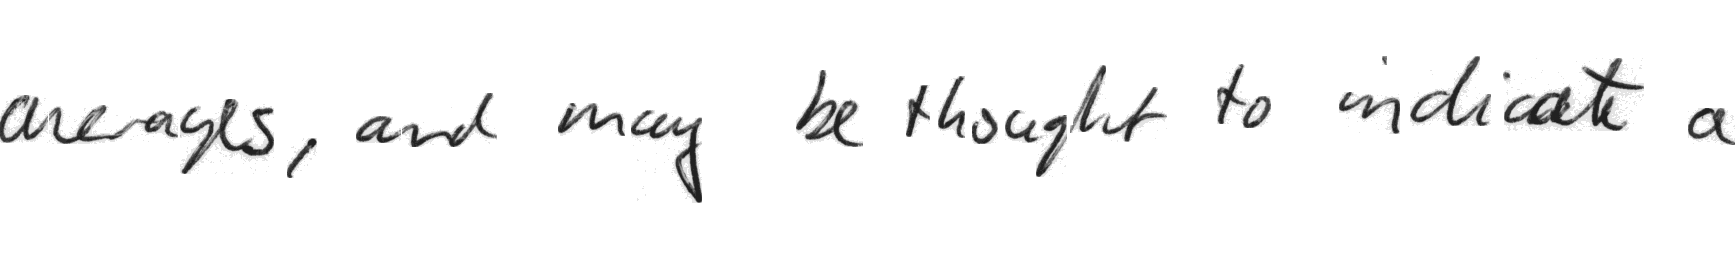 averages, and may be thought to indicate a